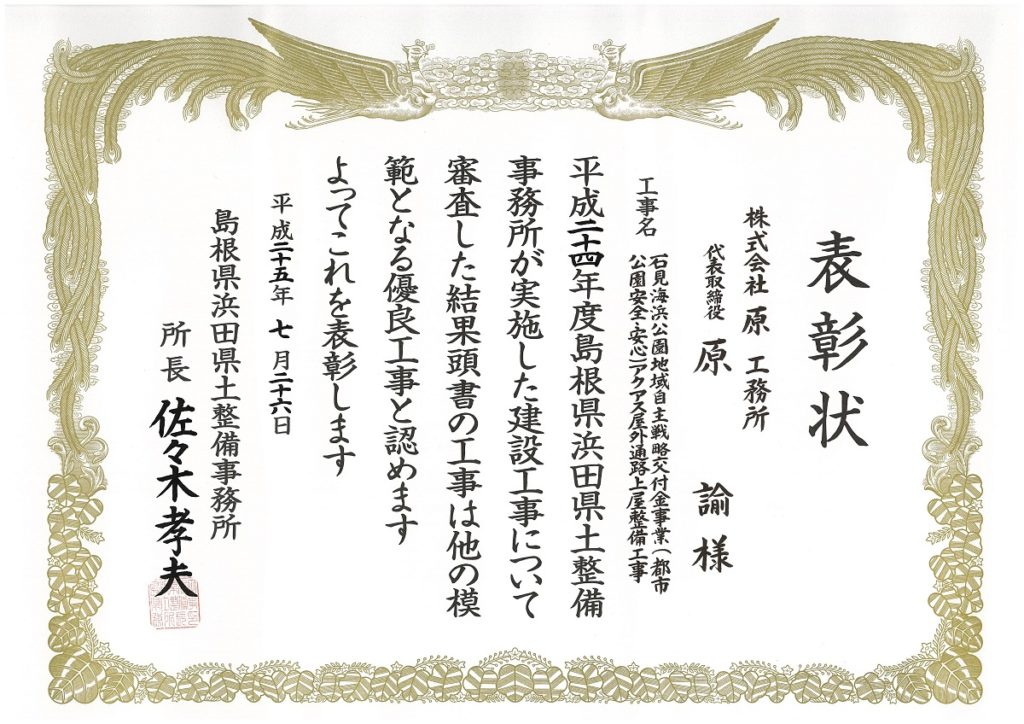 表彰状
株式会社 原 工務所
代表取締役 原 諭 様
工事名 石見海浜公園地域自主戦略交付金事業(都市
公園安全・安心)アクアス屋外通路上屋整備工事
平成二十四年度島根県浜田県土整備
事務所が実施した建設工事について
審査した結果頭書の工事は他の模
範となる優良工事と認めます
よってこれを表彰します
平成二十五年 七 月二十六日
島根県浜田県土整備事務所
所長 佐々木孝夫